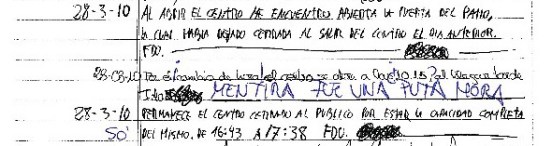 28-3-10 AL ABRIR EL CENTRO ME ENCUENTRO ABIERTA LA PUERTA DEL PATIO,
LA CUAL HABIA DEJADO CERRADA AL SALIR DEL CENTRO EL DIA ANTERIOR.
FDO.
28-03-10 cambio de se abre a
MENTIRA FUE UNA PUTA MORA
28-3-10 PERMANECE EL CENTRO CERRADO AL PUBLICO POR ESTAR LA CAPACIDAD COMPLETA
DEL MISMO. DE 16:43 A 17:38 FDO.